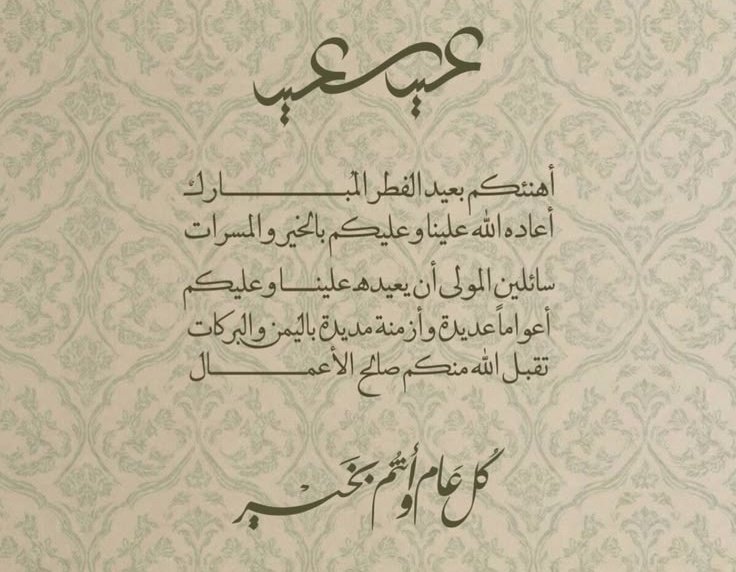 عيد سعيد
أهنئكم بعيد الفطر المبـــــــــارك
أعاده الله علينا وعليكم بالخير والمسرات
سائلين المولى أن يعيده علينـــا وعليكم
أعواماً عديدة وأزمنة مديدة باليمن والبركات
تقبل الله منكم صالح الأعمـــــــــال
كُل عَام وأنتُم بخَيْر